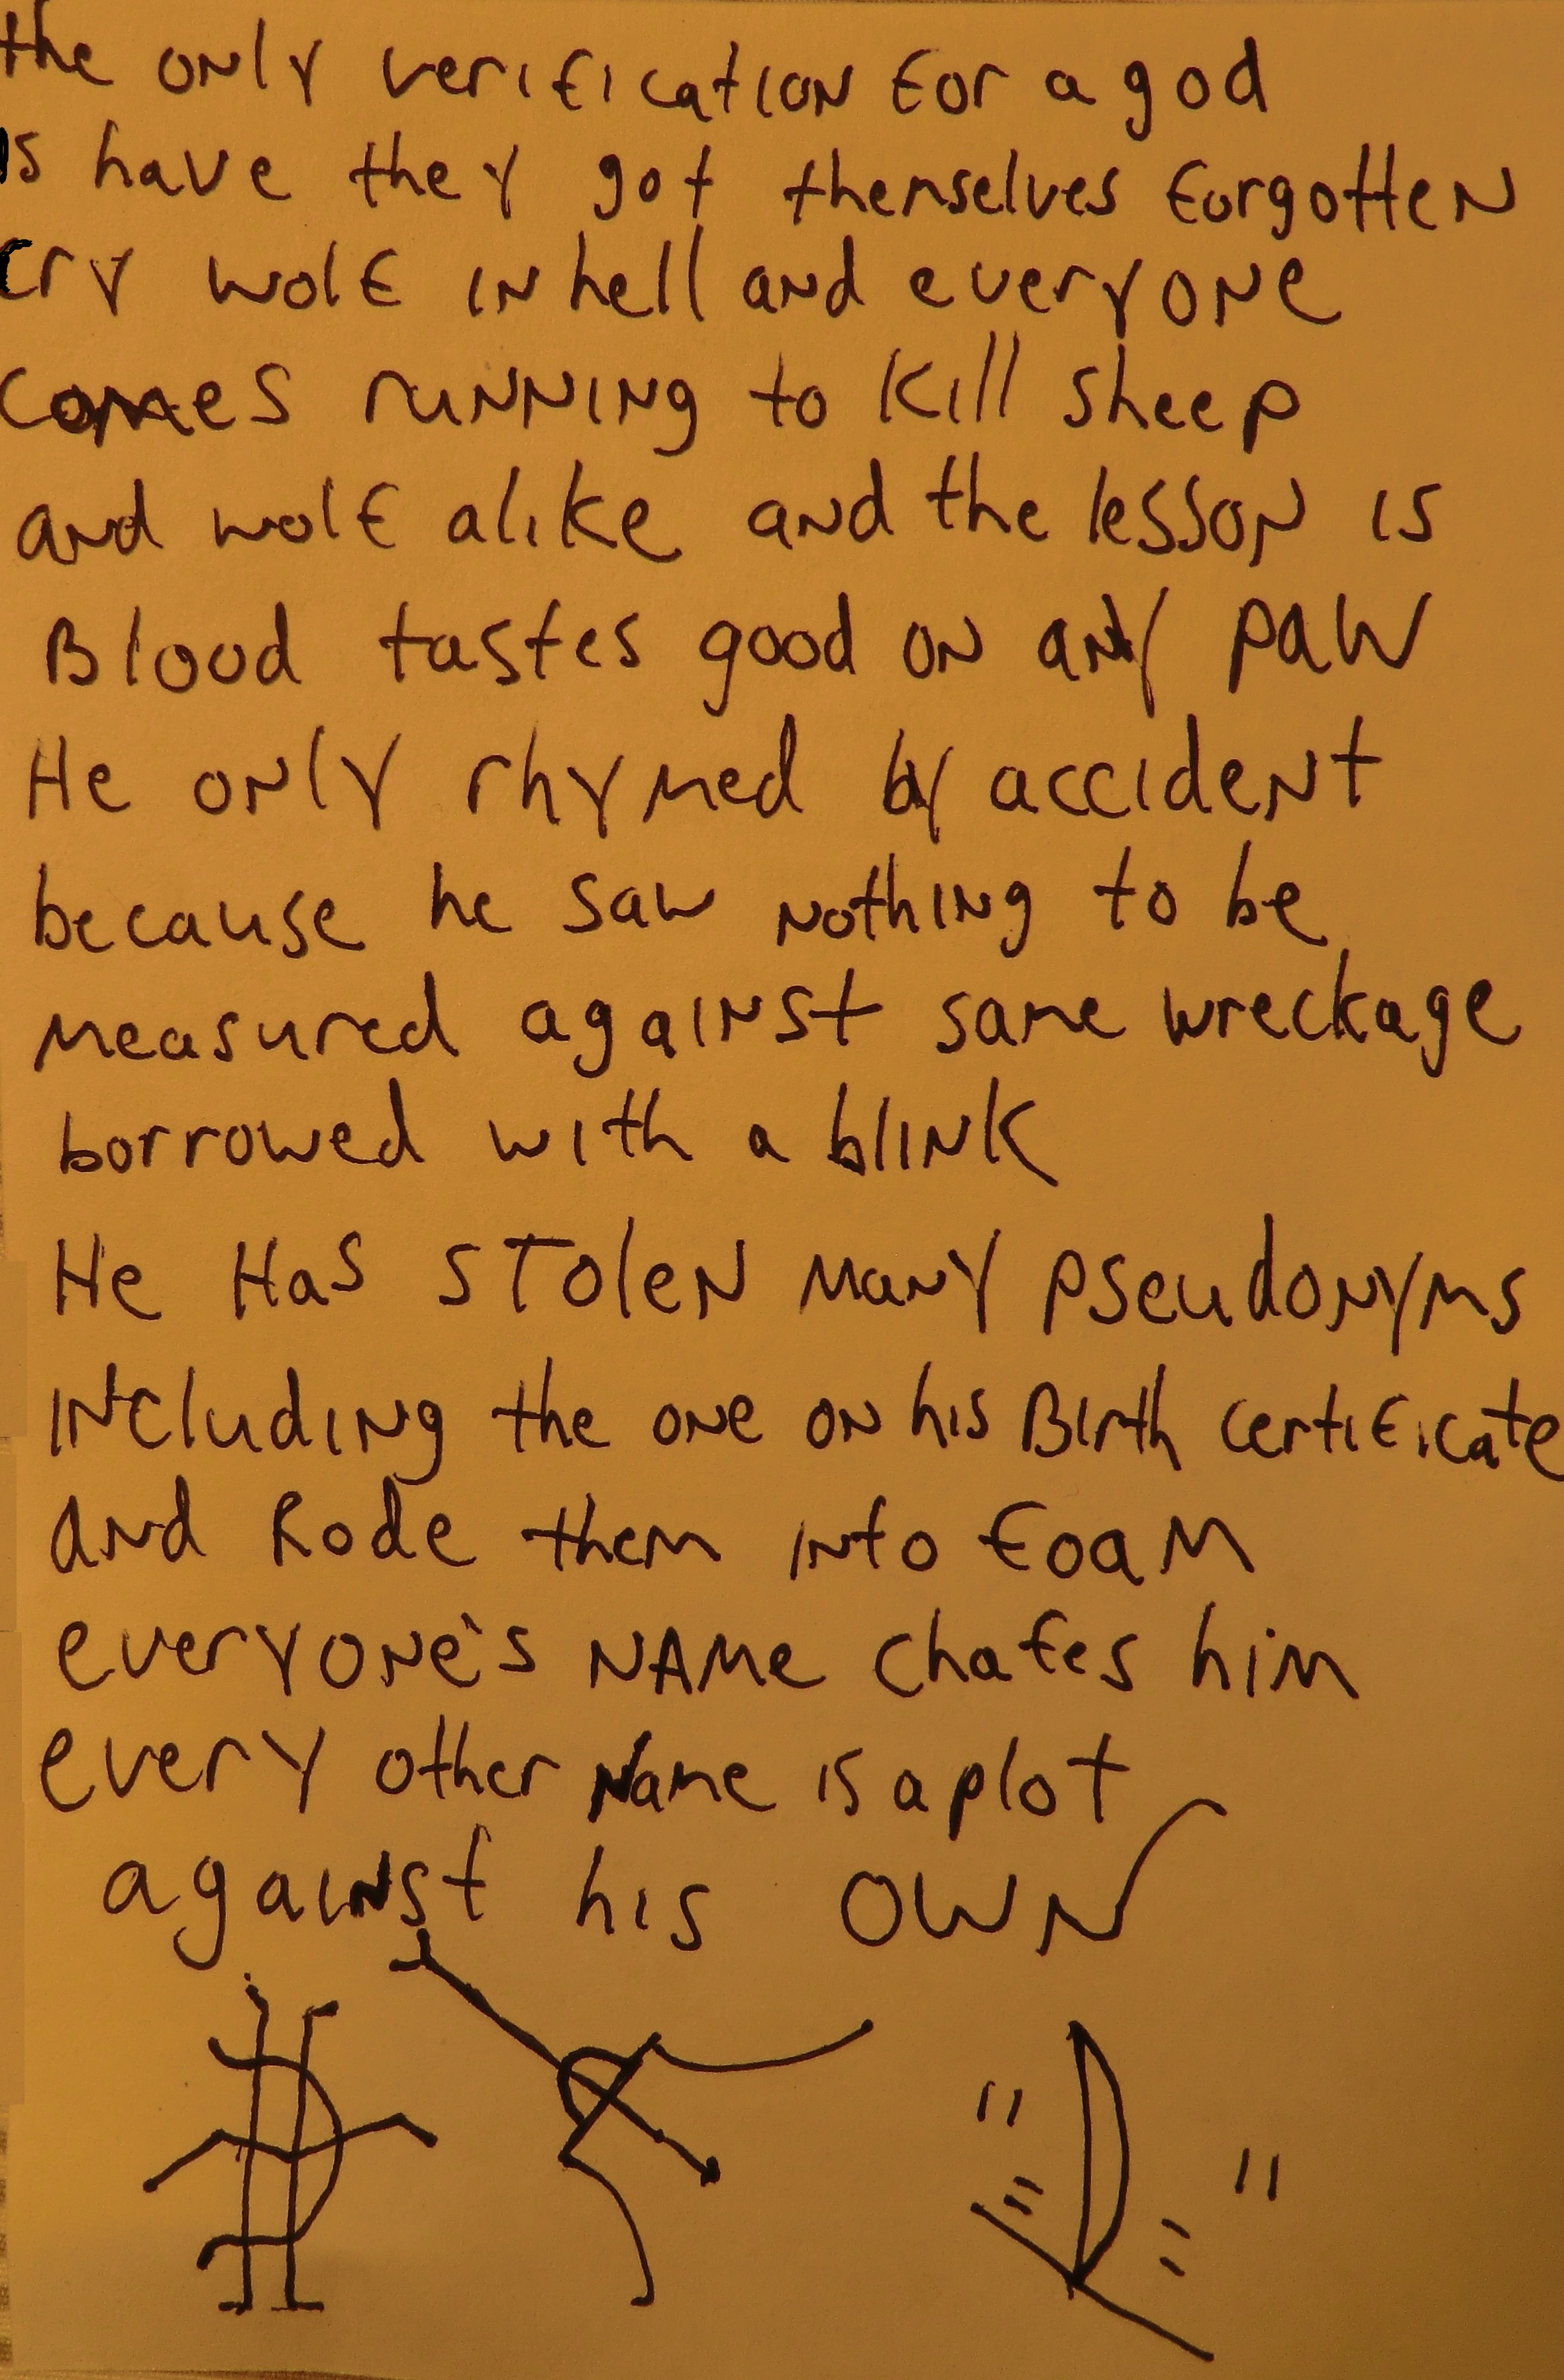 the only verification for a god
is have they got themselves forgotten
cry wolf in hell and everyone
comes running to kill sheep
and wolf alike and the lesson is
Blood tastes good on any paw
He only rhymed by accident
because he saw nothing to be
measured against same wreckage
borrowed with a blink
He Has STOlen many pseudonyms
including the one on his Birth certificate
and Rode them into foam
everyone's NAMe chafes him
every other Name is a plot
against his OWN